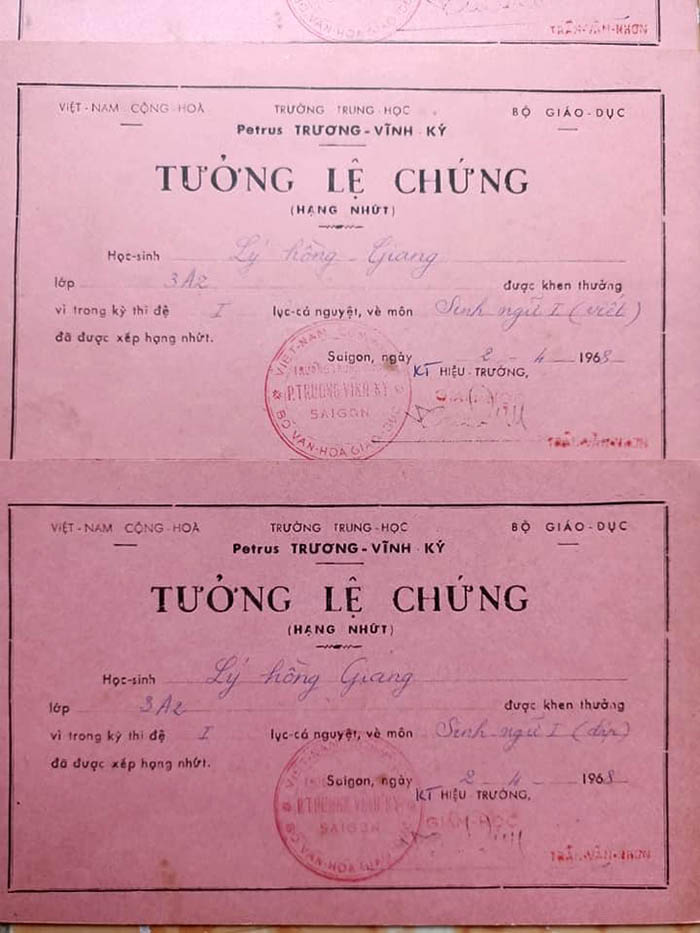 TRẦN-VĂN-NHƠN
VIỆT-NAM CỘNG-HOÀ
TRƯỜNG TRUNG-HỌC
BỘ GIÁO-DỤC
Petrus TRƯƠNG-VĨNH-KÝ
TƯỞNG LỆ CHỨNG
(HẠNG NHỨT)
Học-sinh Lý hồng-Giang
lớp 3A2 được khen thưởng
vì trong kỳ thi đệ I lục-cá nguyệt, về môn Sinh ngữ I (viết)
đã được xếp hạng nhứt.
Saigon, ngày 2-4-1968
KT HIỆU-TRƯỞNG,
GIÁM-HỌC
VIỆT-NAM CỘNG-HOÀ
TRƯỜNG TRUNG-HỌC
P.TRƯƠNG VĨNH KÝ
SAIGON
BỘ VĂN-HOÁ GIÁO-DỤC
TRẦN-VĂN-NHƠN
VIỆT-NAM CỘNG-HOÀ
TRƯỜNG TRUNG-HỌC
BỘ GIÁO-DỤC
Petrus TRƯƠNG-VĨNH-KÝ
TƯỞNG LỆ CHỨNG
(HẠNG NHỨT)
Học-sinh Lý hồng Giang
lớp 3A2 được khen thưởng
vì trong kỳ thi đệ I lục-cá nguyệt, về môn Sinh ngữ I
đã được xếp hạng nhứt.
Saigon, ngày 2-4-1968
KT HIỆU-TRƯỞNG,
GIÁM-HỌC
P.TRƯƠNG VĨNH KÝ
SAIGON
TRẦN-VĂN-NHƠN